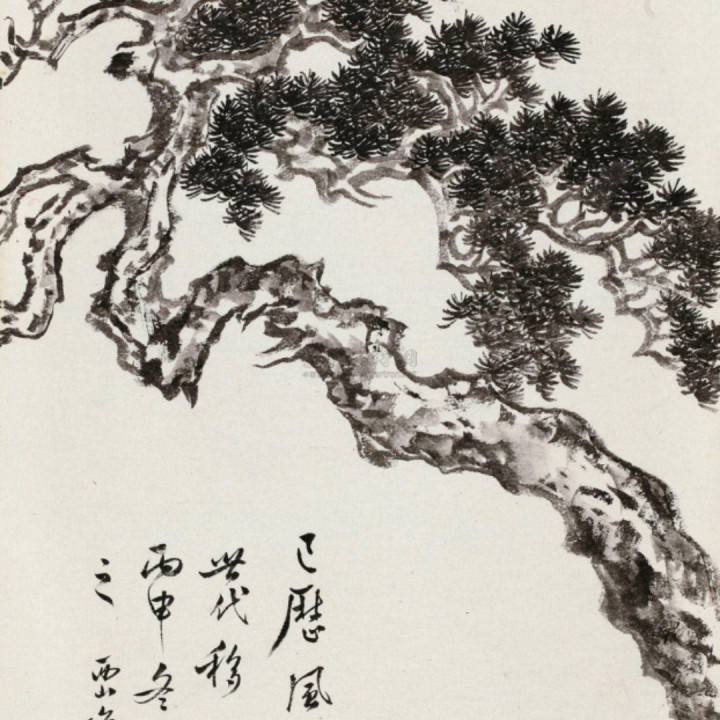 已歷風
世代移
丙申冬
之
西山